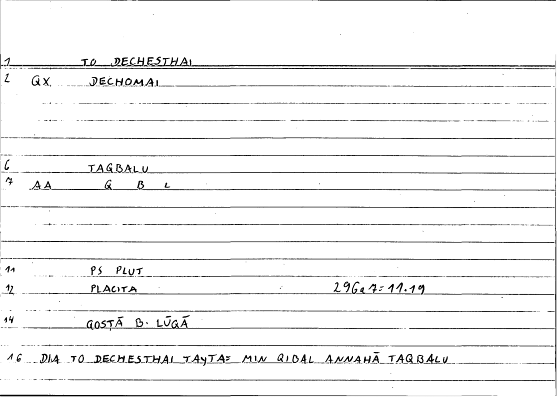 1 TO DECHESTHAI
2 QX DECHOMAI
6 TAQBALU
7 AA Q B L
11 PS PLUT
12 PLACITA 296a7=11.19
14 QOSṬĀ B. LŪQĀ
16 DIA TO DECHESTHAI TAYTA= MIN QIBAL ANNAHĀ TAQBALU